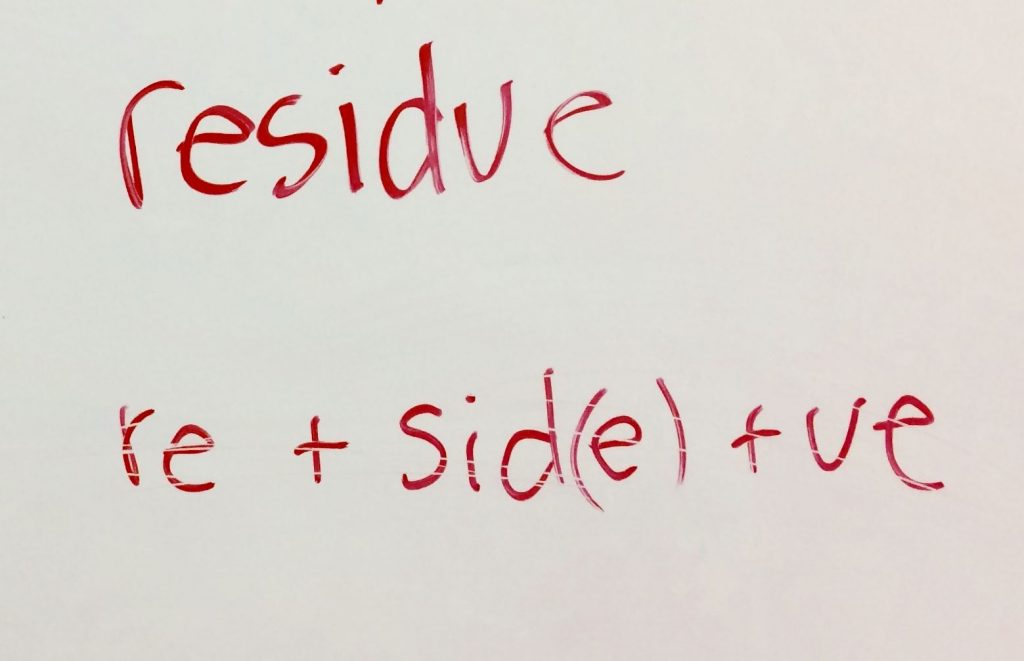 residue
re + sid(e) + ue